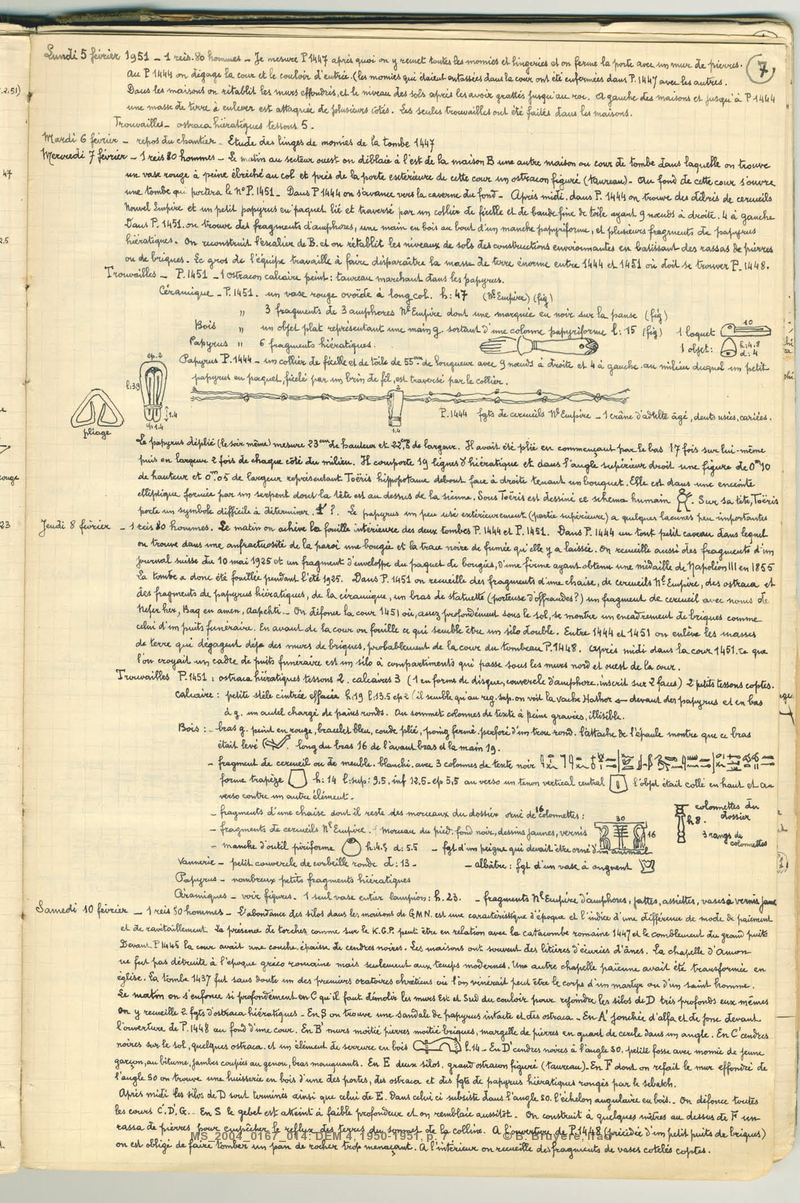 7
Lundi 5 février 1951 – 1 reis. 80 hommes – Je mesure P1447 après quoi on y remet toutes les momies et lingeries et on ferme la porte avec un mur de pierres.
Au P.1444 on dégage la cour et le couloir d'entrée. (les momies qui étaient entassées dans la cour ont été enfermées dans P.1447 avec les autres.
Dans les maisons on rétablit les murs effondrés, et le niveau des sols après les avoir grattés jusqu'au roc. A gauche des maisons et jusqu'à P.1444
une masse de terre à enlever est attaquée de plusieurs côtés. Les seules trouvailles ont été faites dans les maisons.
Trouvailles – ostraca hiératiques tessons 5.
Mardi 6 février – repos du chantier – Etude des linges de momies de la tombe 1447
Mercredi 7 février – 1 reis 80 hommes – Le matin au secteur ouest on déblaie à l'est de la maison B une autre maison ou cour de tombe dans laquelle on trouve
un vase rouge à peine ébréché au col et près de la porte extérieure de cette cour un ostracon figuré (taureau) – Au fond de cette cour s'ouvre
une tombe qui portera le N° P.1451. Dans P1444 on s'avance vers la caverne du fond – Après midi. dans P.1444 on trouve des débris de cercueils
Nouvel Empire et un petit papyrus en paquet lié et traversé par un collier de ficelle et de bande fine de toile ayant 9 nœuds à droite. 4 à gauche
Dans P.1451. on trouve des fragments d'amphores, une main en bois au bout d'un manche papyriforme, et plusieurs fragments de papyrus
hiératiques. On reconstruit l'escalier de B. et on rétablit les niveaux de sols des constructions environnantes en bâtissant des rassas de pierres
ou de briques. Le gros de l'équipe travaille à faire disparaître la masse de terre énorme entre 1444 et 1451 où doit se trouver P.1448.
Trouvailles – P.1451 – 1 ostracon calcaire peint: taureau marchant dans les papyrus.
Céramique – P.1451. un vase rouge ovoïde à long col. h: 47 (Nl Empire) (fig)
" 3 fragments de 3 amphores Nl Empire dont une marquée en noir sur la panse (fig)
Bois " un objet plat représentant une main g. sortant d'une colonne papyriforme l: 15 (fig) 1 loquet 10
Papyrus " 6 fragments hiératiques. 1 objet: h: 4.8 d: 4
Papyrus P.1444 – un collier de ficelle et de toile de 55 cm de longueur avec 9 nœuds à droite et 4 à gauche. au milieu duquel un petit
papyrus en paquet, ficelé par un brin de fil, est traversé par le collier.
ep. 2
l: 3.9
1.4
1.4
pliage
1.4
P.1444 fgts de cercueils Nl Empire – 1 crâne d'adulte âgé, dents usées, cariées.
Le papyrus déplié (le soir même) mesure 23 cm de hauteur et 22,8 de largeur. Il avait été plié en commençant par le bas 17 fois sur lui-même
puis en largeur 2 fois de chaque côté du milieu. Il comporte 19 lignes d'hiératique et dans l'angle supérieur droit une figure de 0m10
de hauteur et 0m,05 de largeur représentant Toëris hippopotame debout face à droite tenant un bouquet. Elle est dans une enceinte
elliptique formée par un serpent dont la tête est au dessus de la sienne. Sous Toëris est dessiné ce schéma humain . Sur sa tête, Toëris
porte un symbole difficile à déterminer. ?. Le papyrus un peu usé extérieurement (partie supérieure) a quelques lacunes peu importantes
Jeudi 8 février – 1 reis 80 hommes. Le matin on achève la fouille intérieure des deux tombes P.1444 et P.1451. Dans P.1444 un tout petit caveau dans lequel
on trouve dans une anfractuosité de la paroi une bougie et la trace noire de fumée qu'elle y a laissée. On recueille aussi des fragments d'un
journal suisse du 10 mai 1925 et un fragment d'enveloppe du paquet de bougies, d'une firme ayant obtenu une médaille de Napoléon III en 1855
La tombe a donc été fouillée pendant l'été 1925. Dans P.1451 on recueille des fragments d'une chaise, de cercueils Nl Empire, des ostraca et
des fragments de papyrus hiératiques, de la céramique, un bras de statuette (porteuse d'offrandes?) un fragment de cercueil avec noms de
Neferher, Baq en amen, Aapehti. – On défonce la cour 1451 où, assez profondément sous le sol, se montre un encadrement de briques comme
celui d'un puits funéraire. En avant de la cour on fouille ce qui semble être un silo double. Entre 1444 et 1451 on enlève les masses
de terre qui dégagent déjà des murs de briques, probablement de la cour du tombeau P.1448. Après midi dans la cour 1451. ce que
l'on croyait un cadre de puits funéraire est un silo à compartiments qui passe sous les murs nord et ouest de la cour.
Trouvailles P.1451: ostraca hiératiques tessons 2. calcaires 3 (1 en forme de disque, couvercle d'amphore, inscrit sur 2 faces) 2 petits tessons coptes.
Calcaire: petite stèle cintrée effacée h.19 l.13.5 ep 2 (il semble qu'au reg. sup. on voit la vache Hathor devant des papyrus et en bas
à g. un autel chargé de pains ronds. Au sommet colonnes de texte à peine gravées, illisible.
Bois: – bras g. peint en rouge, bracelet bleu, coude plié, poing fermé perforé d'un trou rond. l'attache de l'épaule montre que ce bras
était levé . long du bras 16 de l'avant bras et la main 19.
– fragment de cercueil ou de meuble. blanchi. avec 3 colonnes de texte noir
forme trapèze h: 14 l: sup: 9.5. inf 12.5 – ep 5.5 au verso un tenon vertical central l'objet était collé en haut et au
verso contre un autre élément.
– fragments d'une chaise dont il reste des morceaux du dossier orné de 16 colonnettes: 30 16 colonnettes du dossier h 8. 3 rangs de colonnettes
– fragments de cercueils Nl Empire. 1 morceau du pied. fond noir, dessins jaunes, vernis
– manche d'outil piriforme h: 4.5 d: 5.5 – fgt d'un peigne qui devait être orné d'un animal
Vannerie – petit couvercle de corbeille ronde d: 13 – – albâtre: fgt d'un vase à onguent
Papyrus – nombreux petits fragments hiératiques
Céramiques – voir figures. 1 seul vase entier lampion: h. 23. – fragments Nl Empire d'amphores, jattes, assiettes, vases à vernis jaune
Samedi 10 février – 1 reis 50 hommes – L'abondance des silos dans les maisons du G.M.N. est une caractéristique d'époque et l'indice d'une différence de mode de paiement
et de ravitaillement. La présence de torches comme sur le K.G.P. peut être en relation avec la catacombe romaine 1447 et le comblement du grand puits
Devant P.1445 la cour avait une couche épaisse de cendres noires. Les maisons ont souvent des litières d'écuries d'ânes. La chapelle d'Amon
ne fut pas détruite à l'époque gréco romaine mais seulement aux temps modernes. Une autre chapelle païenne avait été transformée en
église. La tombe 1437 fut sans doute un des premiers oratoires chrétiens où l'on vénérait peut être le corps d'un martyr ou d'un saint homme.
Le matin on s'enfonce si profondément en C qu'il faut démolir les murs est et Sud du couloir pour rejoindre les silos de D très profonds eux mêmes
On y recueille 2 fgts d'ostraca hiératiques – En B on trouve une sandale de papyrus intacte et des ostraca – En A' jonchée d'alfa et de jonc devant
l'ouverture de P.1448 au fond d'une cour. En B' murs moitié pierres moitié briques, margelle de pierres en quart de cercle dans un angle. En C' cendres
noires sur le sol, quelques ostraca. et un élément de serrure en bois l.14 – En D' cendres noires à l'angle SO. petite fosse avec momie de jeune
garçon, au bitume, jambes coupées au genou, bras manquants. En E deux silos. grand ostracon figuré (taureau) – En F dont on refait le mur effondré de
l'angle SO on trouve une huisserie en bois d'une des portes, des ostraca et des fgts de papyrus hiératiques rongés par le sebakh.
Après midi les silos de D sont terminés ainsi que celui de E. Dans celui ci subsiste dans l'angle SO. l'échelon angulaire en bois. – On défonce toutes
les cours C'. D'. G. – En S le gebel est atteint à faible profondeur et on remblaie aussitôt. On construit à quelques mètres au dessus de F un
rassa de pierres pour empêcher le reflux des terres du sommet de la colline. A l'ouverture de P.1448 (précédée d'un petit puits de briques)
on est obligé de faire tomber un pan de rocher trop menaçant. A l'intérieur on recueille des fragments de vases côtelés coptes.
MS_2004_0167_014: DEM 4, 1950-1951, p. 7 © B. Bruyère, Ifao